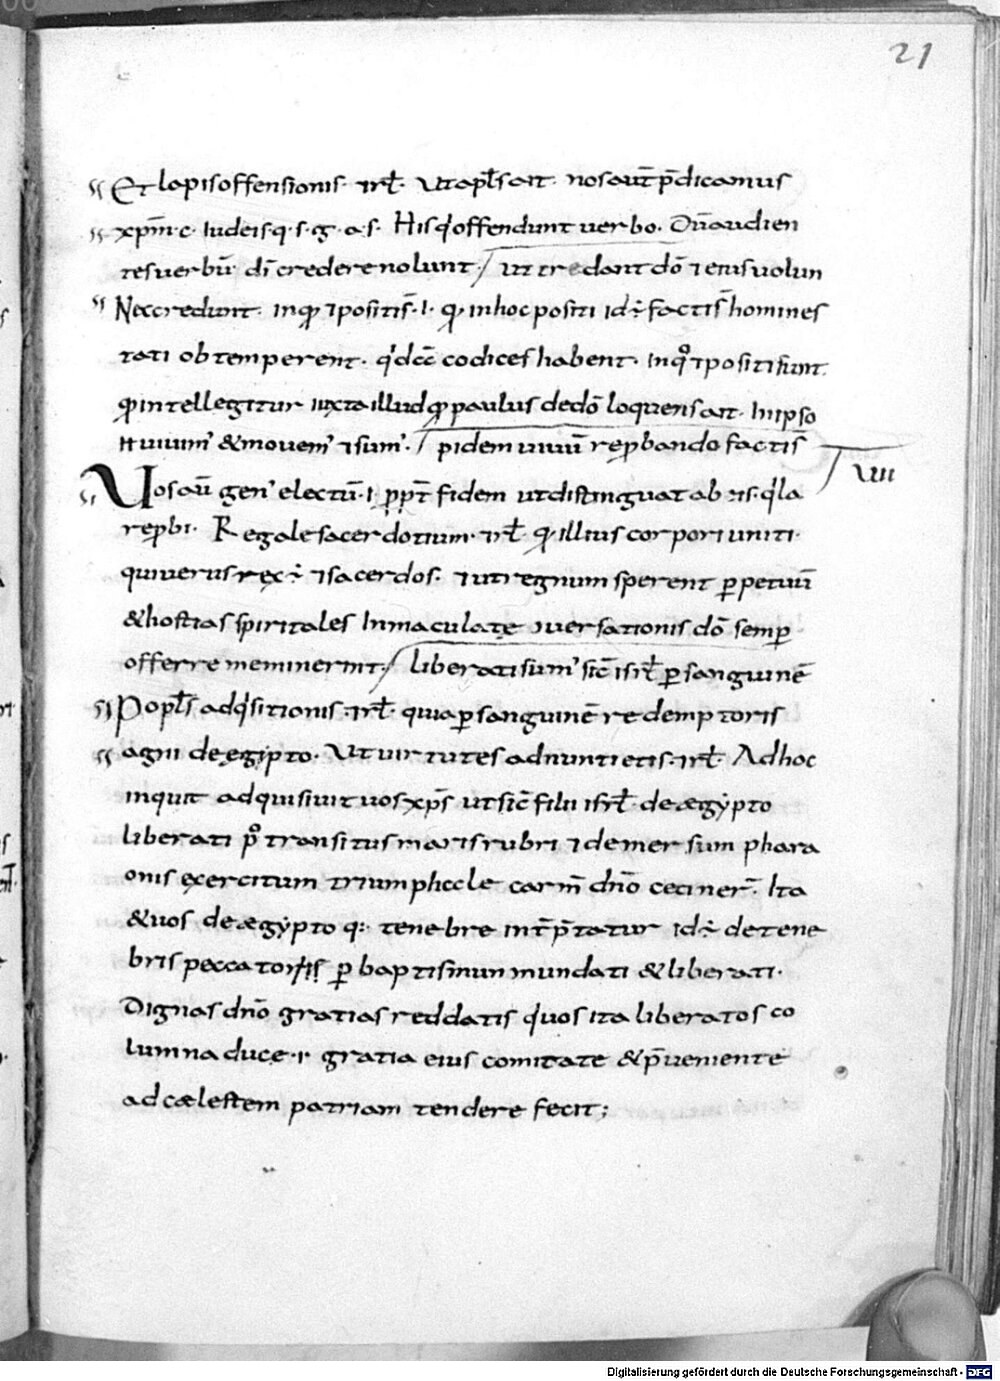 21
Et lapis offensionis · & rł · Ut apłs ait · nos aut̄ p̄dicamus
xp̄m · c · Iudeis · q · s · g · a · s · His q̇ offendunt uerbo · Dūaudien
tes uerbū dī credere nolunt / ut credant dō ⁊ eius uolun
Nec credunt · In q ⁊ positi s̄ · I · q in hoc positi id ÷ facti s̄ homines
tati obtemperent · q'dā codices habent · In qͦ ⁊ positi sunt
q intellegitur iuxta illud q paulus de dō loquens ait · In ipso
uiuim' & mouem' ⁊ sum' · / pidem uiuū reprobando facti s̄
VII
Uos aū gen' electū · I · ppt̄ fidem ut distinguat ab iis q'la
reprobi · Regale sacerdotium · & rł · q illius corpori uniti ·
qui uerus rex ÷ ⁊ sacerdos · ⁊ ut regnum sperent perpetuū
& hostias spiritales Inmaculatę ɔuersationis dō semper
offerre meminerint · / liberati sum' sic̄ isrł p sanguinē
Popłs adq'sitionis · & rł · quia p sanguinē redemptoris
agni de egipto · Ut uirtutes adnuntietis · & rł · Ad hoc
inquit adquisiuit uos xp̄s ut sic̄ filii isrł · de ægẏpto
liberati pͦ transitus maris rubri ⁊ demersum phara
onis exercitum triumphale carm̄ dn̄o ceciner̄ · Ita
& uos de ægẏpto q: tenebre int̄p̄tatur id ÷ de tene
bris peccatoris p baptismum mundati & liberati ·
Dignas dn̄o gratias reddatis q'uos ita liberatos co
lumna duce · I · gratia eius comitate & p̄ueniente
ad cælestem patriam tendere fecit ;
Digitalisierung gefördert durch die Deutsche Forschungsgemeinschaft - DFG